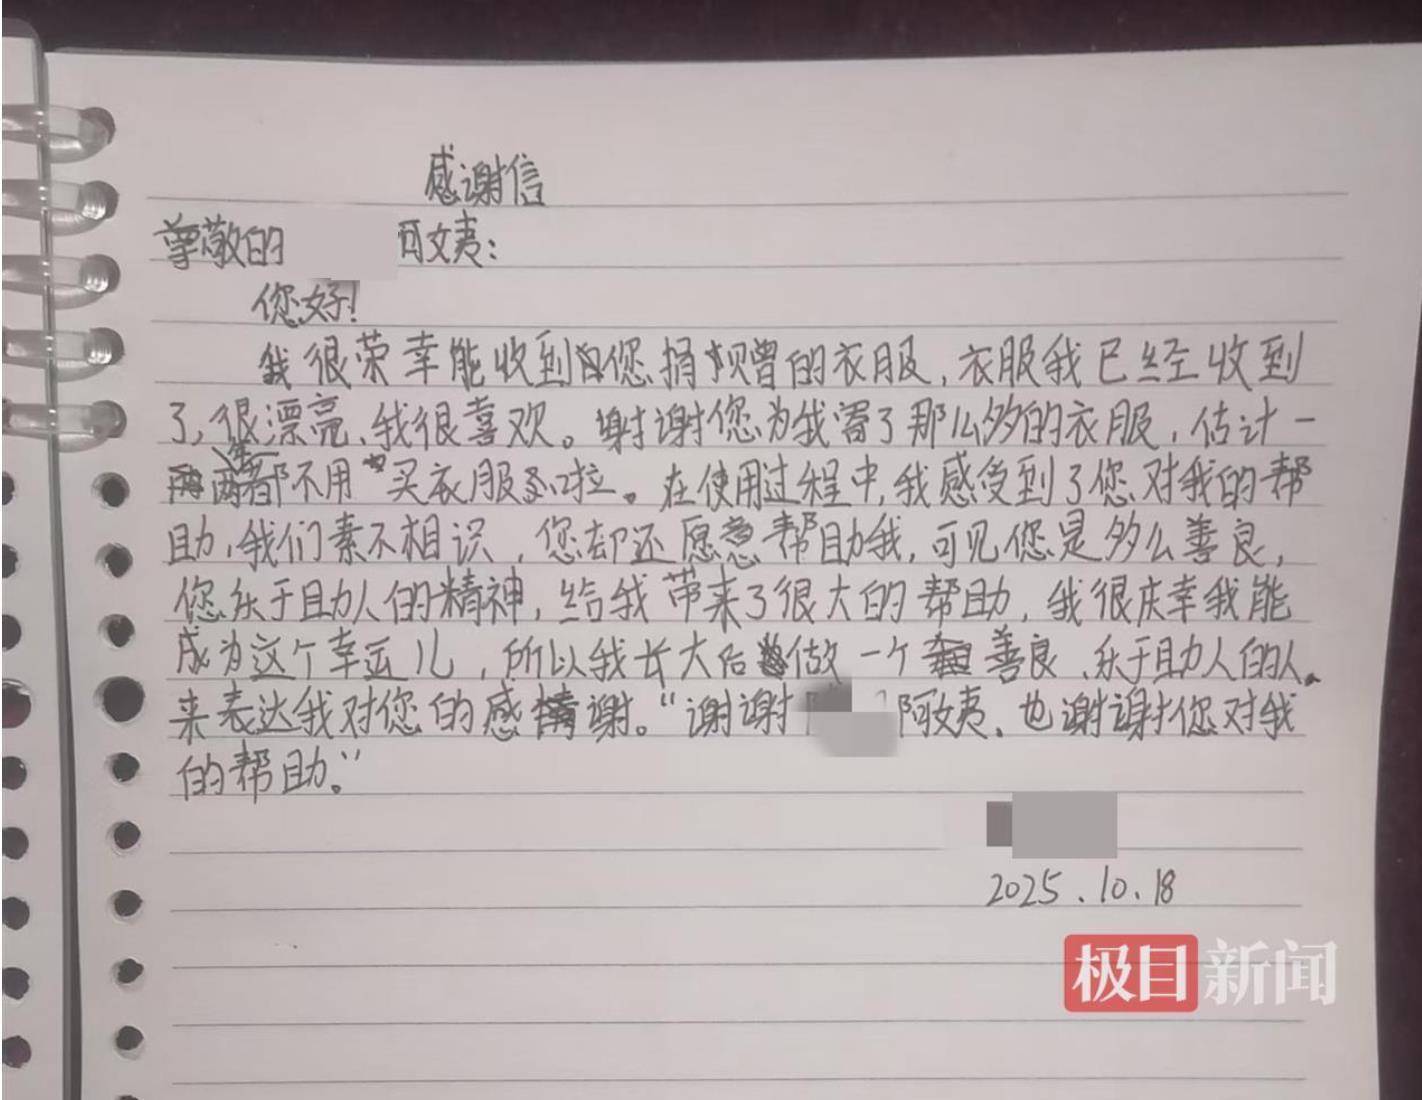 感谢信
尊敬的 阿姨：
您好！
我很荣幸能收到您捐赠的衣服，衣服我已经收到
了，很漂亮、我很喜欢。谢谢您为我寄了那么多的衣服，估计一
两年都不用买衣服啦。在使用过程中，我感受到了您对我的帮
助，我们素不相识，您却还愿意帮助我，可见您是多么善良，
您乐于助人的精神，给我带来了很大的帮助，我很庆幸我能
成为这个幸运儿，所以我长大后做一个善良、乐于助人的人。
来表达我对您的感谢。“谢谢 阿姨、也谢谢您对我
的帮助。”
2025.10.18
极目新闻